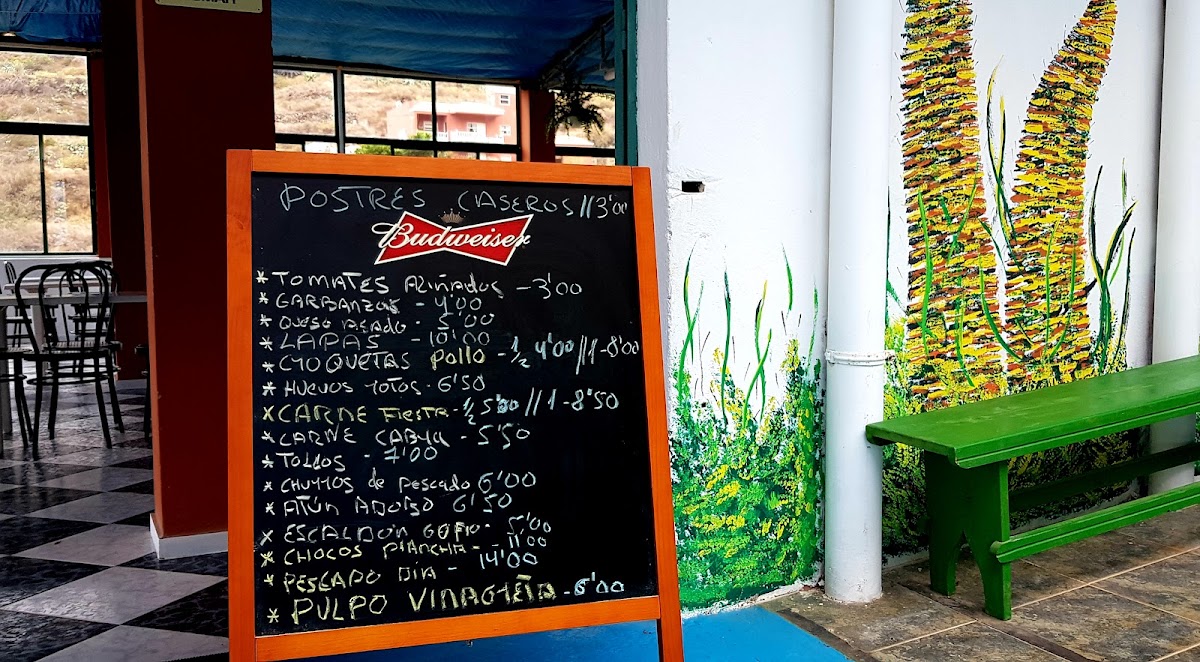 POSTRES CASEROS // 3'00
Budweiser
* TOMATES ALIÑADOS - 3'00
* GARBANZOS - 4'00
* QUESO ASADO - 5'00
* LAPAS - 10'00
* CROQUETAS POLLO - 1/2 4'00 // 1 - 8'00
* HUEVOS ROTOS - 6'50
* CARNE FIESTA - 1/2 5'00 // 1 - 8'50
* CARNE CABRA - 5'50
* TOLLOS - 7'00
* CHURROS de PESCADO 6'00
* ATÚN ADOBO 6'50
* ESCALDÓN GOFIO - 5'00
* CHOCOS PLANCHA - 11'00
* PESCADO DIA - 14'00
* PULPO VINAGRETA - 6'00